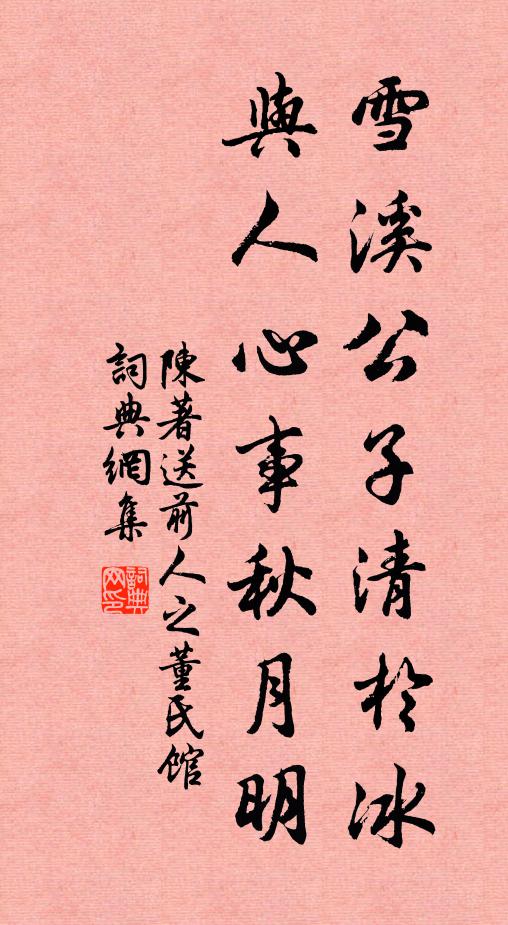 雪溪公子清於冰
與人心事秋月明
陳著送前人之董氏館
詞典網集
詞典网印